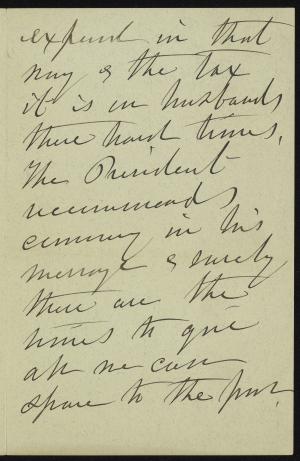 expend in that
way & the tax
it is on husbands
these hard times.
The President
recommends
economy in his
message & surely
these are the
times to give
all we can
spare to the poor.